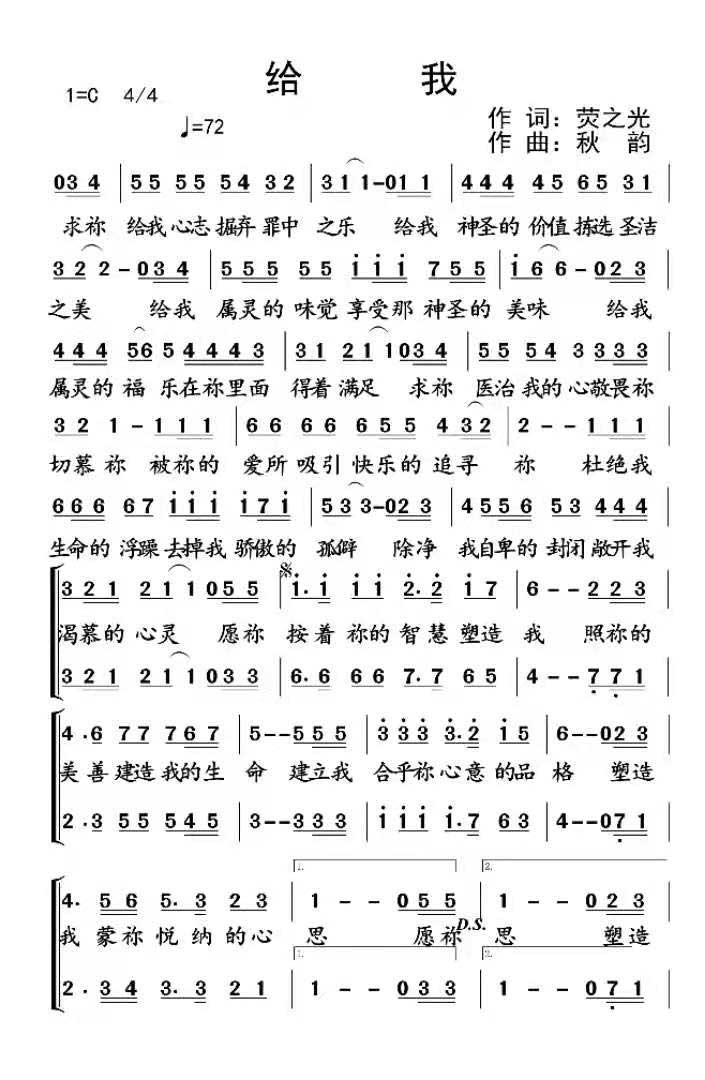 给 我
1=C 4/4
♩=72
作 词：荧之光
作 曲：秋 韵
034 | 55 55 54 32 | 311-011 | 444 45 65 31 |
求祢 给我心志掘弃罪中 之乐 给我 神圣的 价值拣选圣洁
322-034 | 555 55 i̇i̇i̇ 755 | i̇66-023 |
之美 给我 属灵的 味觉享受那 神圣的 美味 给我
444 565 4443 | 31 211034 | 55 54 3 333 |
属灵的 福 乐在祢里面 得着满足 求祢 医治我的心敬畏祢
32 1-111 | 666 66 655 432 | 2--111 |
切慕祢 被祢的 爱所吸引快乐的追寻 祢 杜绝我
666 67 i̇i̇i̇ i̇7i̇ | 533-023 | 4556 53 444 |
生命的浮躁去掉我骄傲的 孤僻 除净 我自卑的封闭敞开我
321 211055 | i̇.i̇ i̇i̇ 2̇.2̇ i̇7 | 6--223 |
渴慕的心灵 愿祢 按着祢的智慧塑造 我 照祢的
321 211033 | 6.6 66 7.7 65 | 4--7̣7̣1 |
4.6 77 767 | 5--555 | 3̇3̇3̇ 3̇.2̇ i̇5 | 6--023 |
美善建造我的生 命 建立我 合乎祢心意的品 格 塑造
2.3 55 545 | 3--333 | i̇i̇i̇ i̇.7 63 | 4--07̣1 |
1. 2.
4. 56 5.3 23 | 1--055 | 1--023 |
我 蒙祢悦纳的心 思 愿祢 思 塑造
D.S.
1. 2.
2.34 3.3 21 | 1--033 | 1--07̣1 |